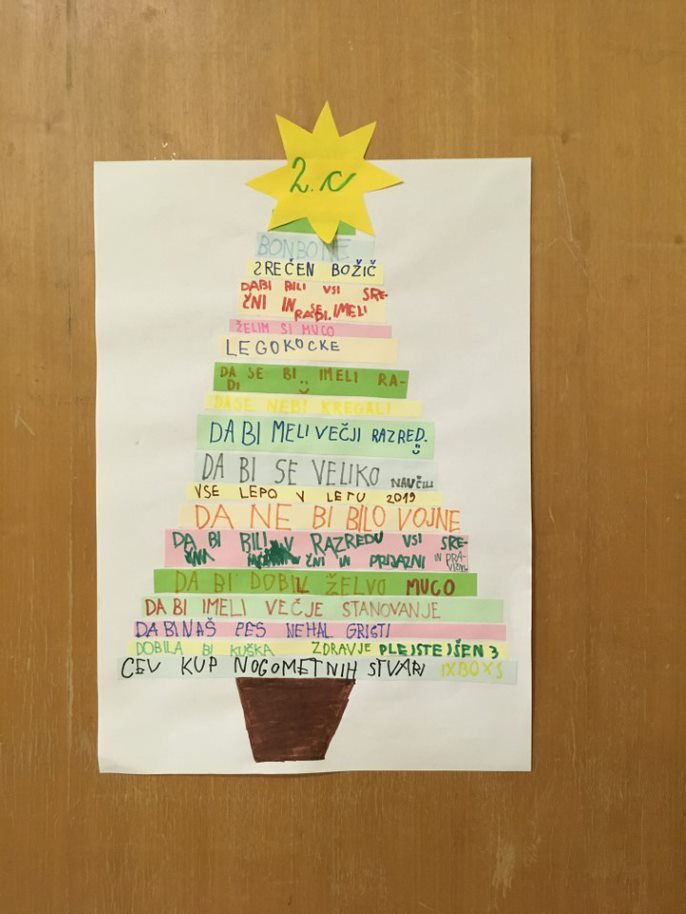 2. c
BONBONE
SREČEN BOŽIČ
DA BI BILI VSI SRE-
ČNI IN SE IMELI
RADI.
ŽELIM SI MUCO
LEGOKOCKE
DA SE BI IMELI RA-
DI
DA SE NEBI KREGALI
DA BI MELI VEČJI RAZRED.
DA BI SE VELIKO NAUČILI
VSE LEPO V LETU 2019
DA NE BI BILO VOJNE
DA BI BILI V RAZREDU VSI SRE-
ČNI IN PRIJAZNI IN PRA-
DA BI DOBIL ŽELVO MUCO
DA BI IMELI VEČJE STANOVANJE
DA BI NAŠ PES NEHAL GRISTI
DOBILA BI KUŠKA ZDRAVJE PLEJSTEJŠEN 3
CEV KUP NOGOMETNIH STVARI IXBOXS